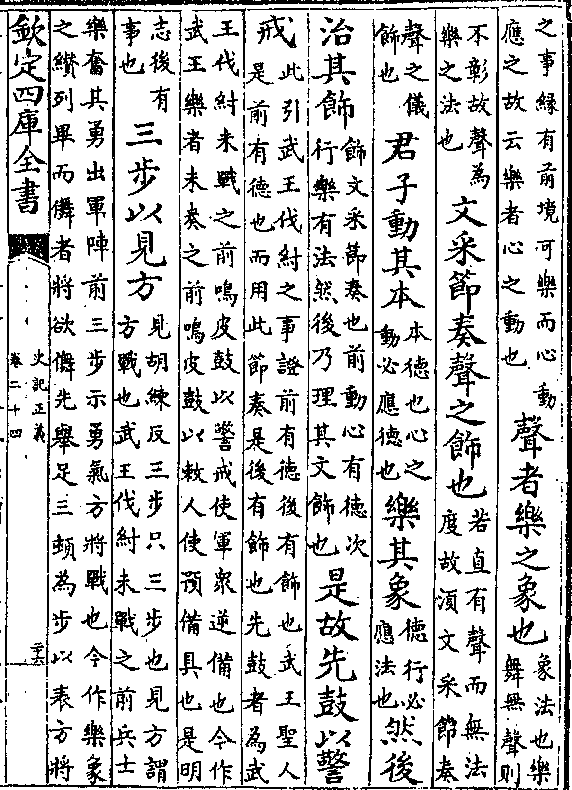 之事縁有前境可樂而心動
應之故云樂者心之動也
聲者樂之象也
象法也樂
舞無聲則
不彰故聲為
樂之法也
文采節奏聲之飾也
若直有聲而無法
度故須文采節奏
聲之儀
飾也
君子動其本
本德也心之
動必應德也
樂其象
德行必
應法也
然後
治其飾
飾文采節奏也前動心有德次
行樂有法然後乃理其文飾也
是故先鼓以警
戒
此引武王伐紂之事證前有德後有飾也武王聖人
是前有德也而用此節奏是後有飾也先鼓者為武
王伐紂未戰之前鳴皮鼓以警戒使軍衆逆備也今作
武王樂者未奏之前鳴皮鼓以敕人使預備具也是明
志後有
事也
三步以見方
見胡練反三步只三步也見方謂
方戰也武王伐紂未戰之前兵士
樂奮其勇出軍陣前三步示勇氣方將戰也今作樂象
之纘列畢而儛者將欲儛先舉足三頓為步以表方將
欽定四庫全書
史記正義
卷二十四
二十六